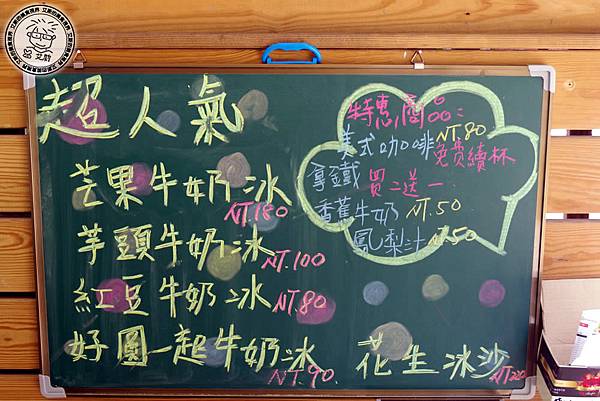 超人氣
芒果牛奶冰
NT.180
芋頭牛奶冰
NT.100
紅豆牛奶冰
NT.80
好圓一起牛奶冰
NT.90.
特惠商品:
美式咖啡 NT.80
免費續杯
拿鐵 買二送一
香蕉牛奶 NT.50
鳳梨汁 NT.50
花生冰沙